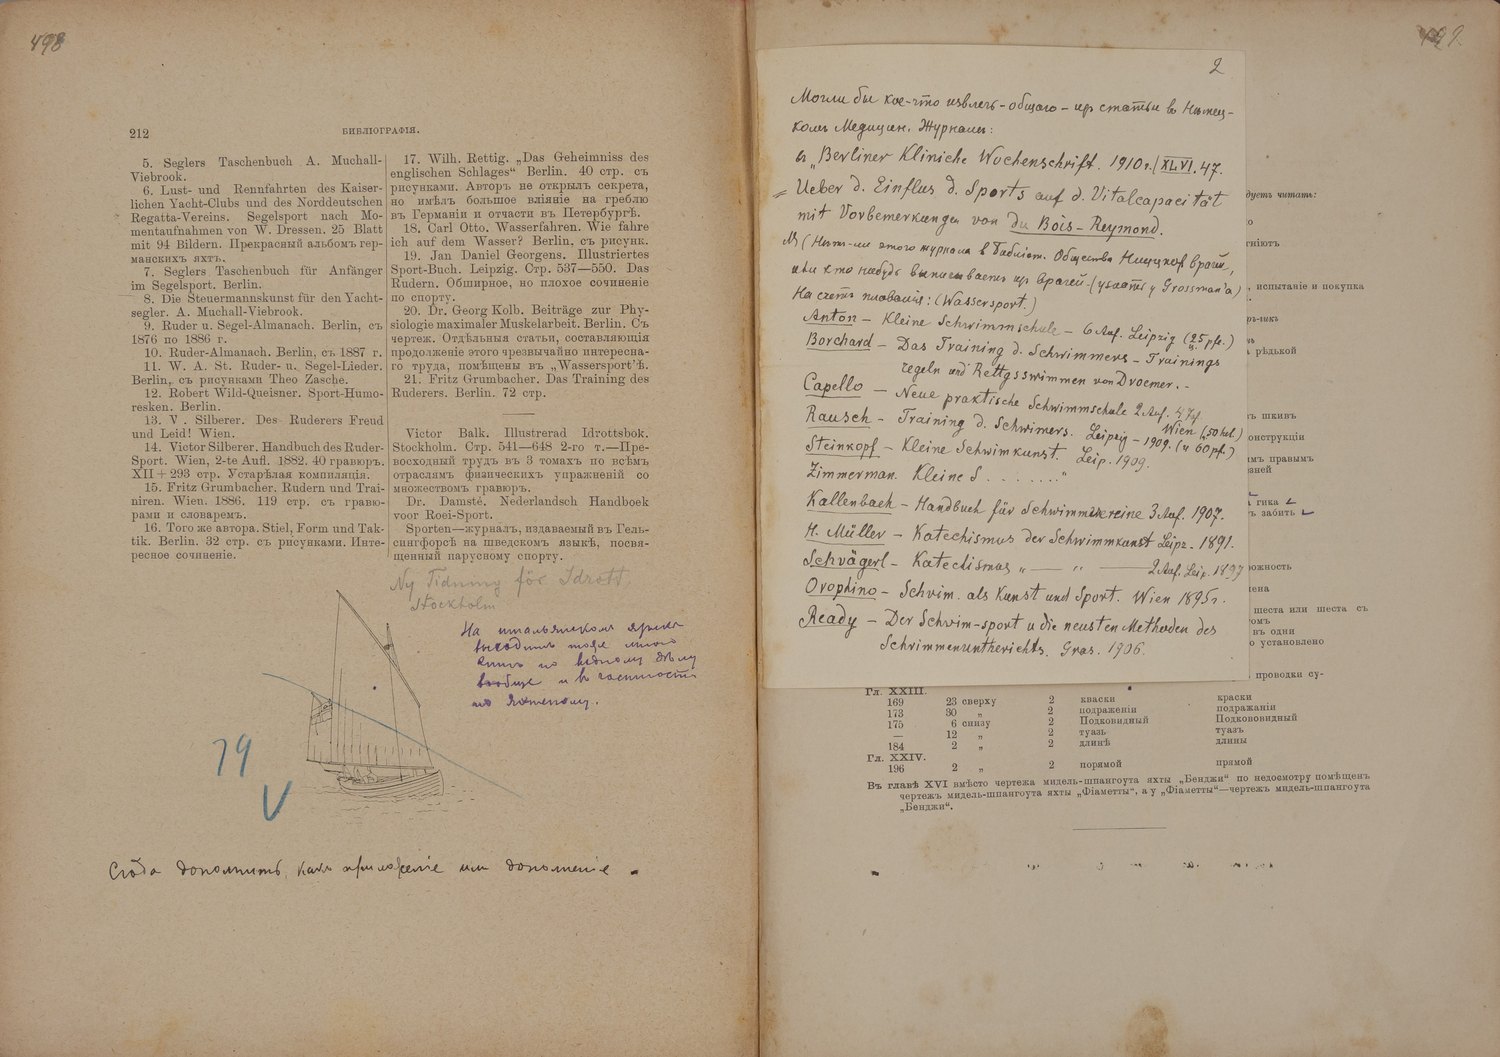 498
212
БИБЛІОГРАФІЯ.
5. Seglers Taschenbuch A. Muchall-
Viebrook.
6. Lust- und Rennfahrten des Kaiser-
lichen Yacht-Clubs und des Norddeutschen
Regatta-Vereins. Segelsport nach Mo-
mentaufnahmen von W. Dressen. 25 Blatt
mit 94 Bildern. Прекрасный альбомъ гер-
манскихъ яхтъ.
7. Seglers Taschenbuch für Anfänger
im Segelsport. Berlin.
8. Die Steuermannskunst für den Yacht-
segler. A. Muchall-Viebrook.
9. Ruder u. Segel-Almanach. Berlin, съ
1876 по 1886 г.
10. Ruder-Almanach. Berlin, съ 1887 г.
11. W. A. St. Ruder- u. Segel-Lieder.
Berlin, съ рисунками Theo Zasche.
12. Robert Wild-Queisner. Sport-Humo-
resken. Berlin.
13. V . Silberer. Des Ruderers Freud
und Leid! Wien.
14. Victor Silberer. Handbuch des Ruder-
Sport. Wien, 2-te Aufl. 1882. 40 гравюръ.
XII + 293 стр. Устарѣлая компиляція.
15. Fritz Grumbacher. Rudern und Trai-
niren. Wien. 1886. 119 стр. съ гравю-
рами и словаремъ.
16. Того же автора. Stiel, Form und Tak-
tik. Berlin. 32 стр. съ рисунками. Инте-
ресное сочиненіе.
17. Wilh. Rettig. „Das Geheimniss des
englischen Schlages“ Berlin. 40 стр. съ
рисунками. Авторъ не открылъ секрета,
но имѣлъ большое вліяніе на греблю
въ Германіи и отчасти въ Петербургѣ.
18. Carl Otto. Wasserfahren. Wie fahre
ich auf dem Wasser? Berlin, съ рисунк.
19. Jan Daniel Georgens. Illustriertes
Sport-Buch. Leipzig. Стр. 537—550. Das
Rudern. Обширное, но плохое сочиненіе
по спорту.
20. Dr. Georg Kolb. Beiträge zur Phy-
siologie maximaler Muskelarbeit. Berlin. Съ
чертеж. Отдѣльныя статьи, составляющія
продолженіе этого чрезвычайно интересна-
го труда, помѣщены въ „Wassersport’ѣ.
21. Fritz Grumbacher. Das Training des
Ruderers. Berlin. 72 стр.
Victor Balk. Illustrerad Idrottsbok.
Stockholm. Стр. 541—648 2-го т.—Пре-
восходный трудъ въ 3 томахъ по всѣмъ
отраслямъ физическихъ упражненій со
множествомъ гравюръ.
Dr. Damsté. Nederlandsch Handboek
voor Roei-Sport.
Sporten—журналъ, издаваемый въ Гель-
сингфорсѣ на шведскомъ языкѣ, посвя-
щенный парусному спорту.
Ny Tidning för Idrott.
Stockholm
На итальянском языке
выходит тоже много
книг по водному дѣлу
вообще и в частности
по яхтеному.
79
V
Сюда дополнить, какъ приложеніе или дополненіе
499.
2
Могли бы кое-что извлечь - общаго - из статьи въ Нѣмец-
комъ Медицин. Журналѣ:
въ „Berliner Kliniche Wochenschrift. 1910 г. (XLVI. 47.
= Ueber d. Einflus d. Sports auf d. Vitalcapacität
mit Vorbemerkungen von du Bois-Reymond.
(Нѣт-ли этого журнала в Библіот. Общества врачей,
или кто нибудь выписываетъ из врачей. (узнать у Grossman'а)
На счетъ плаванія: (Wassersport.)
Anton - Kleine Schwimmschule - 6 Auf. Leipzig (25 pfe.)
Borchard - Das Training d. Schwimmers - Trainings
regeln und Rettgsswimmen von Droemer. -
Capello - Neue praktische Schwimmschule 2 Auf.
Wien (50 hel.)
Rausch - Training d. Schwimers. Leipzig - 1909. (и 60 pf.)
Steinkopf - Kleine Schwimkunst. Leip. 1909.
Zimmerman. Kleine S . . . . . . . "
Kallenbach - Handbuch für Schwimmvereine 3 Auf. 1907.
H. Müller - Katechismus der Schwimmkunst Leipz. 1891.
Schvägerl - Katechismus „ — „ — 2 Auf. Leip. 1897
Orophino - Schvim. als Kunst und Sport. Wien 1895 г.
Ready - Der Schvim-sport u die neusten Methoden des
Schrimmenuntherichts. Gras. 1906.
дуетъ читать:
, испытаніе и покупка
рѣдькой
ъ шкивъ
онструкціи
ымъ правымъ
гика
забить
рожность
шеста или шеста съ
въ одни
о установлено
проводки су-
Гл. XXIII.
169 23 сверху 2 кваски краски
173 30 „ 2 подраженіи подражаніи
175 6 снизу 2 Подковидный Подкововидный
— 12 „ 2 туазь туазъ
184 2 „ 2 длинѣ длины
Гл. XXIV.
196 2 „ 2 порямой прямой
Въ главѣ XVI вмѣсто чертежа мидель-шпангоута яхты „Бенджи“ по недосмотру помѣщенъ
чертежъ мидель-шпангоута яхты „Фіаметты“, а у „Фіаметты“—чертежъ мидель-шпангоута
„Бенджи“.